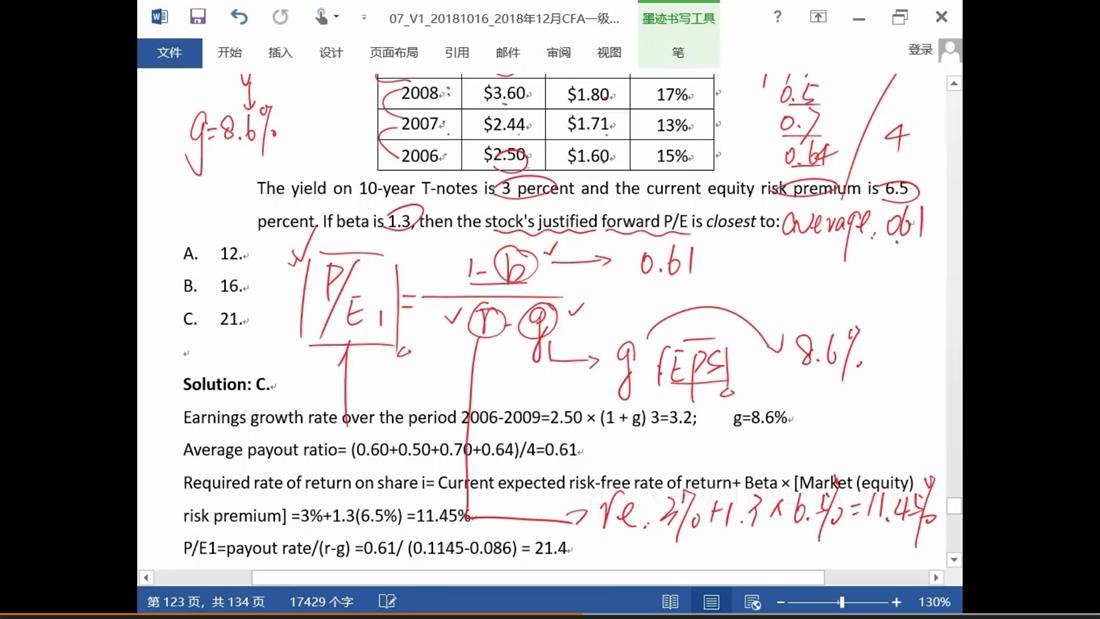 07_V1_20181016_2018年12月CFA一级...
墨迹书写工具
文件 开始 插入 设计 页面布局 引用 邮件 审阅 视图 笔 登录
2008 $3.60 $1.80 17%
2007 $2.44 $1.71 13%
2006 $2.50 $1.60 15%
g=8.6%
0.5
0.7
0.64
4
The yield on 10-year T-notes is 3 percent and the current equity risk premium is 6.5
percent. If beta is 1.3, then the stock's justified forward P/E is closest to:
average. 0.61
A. 12.
B. 16.
C. 21.
P/E1 = 1-b / r-g
0.61
g (EPS)
8.6%
Solution: C.
Earnings growth rate over the period 2006-2009=2.50 × (1 + g) 3=3.2; g=8.6%
Average payout ratio= (0.60+0.50+0.70+0.64)/4=0.61
Required rate of return on share i= Current expected risk-free rate of return+ Beta × [Market (equity)
risk premium] =3%+1.3(6.5%) =11.45%
re. 3%+1.3×6.5%=11.45%
P/E1=payout rate/(r-g) =0.61/ (0.1145-0.086) = 21.4
第 123 页，共 134 页 17429 个字 130%